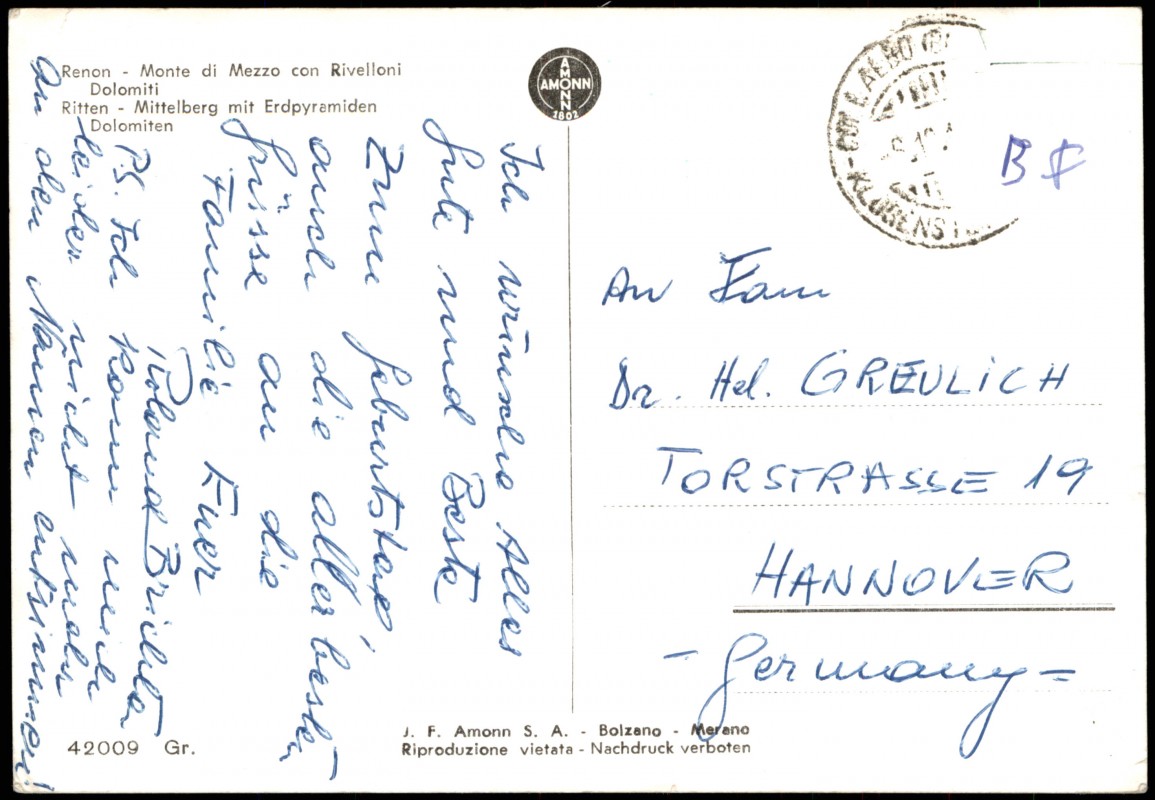 Renon - Monte di Mezzo con Rivelloni
Dolomiti
Ritten - Mittelberg mit Erdpyramiden
Dolomiten
AMONN
AMONN
1802
COLLALBO
KLOBENST
B
Ich wünsche Alles
Gute und Beste
zum Geburtstag,
auch die allerbesten
Grüsse an die
Familie Euer
Roland Brichta
P.S. Ich kann mich
leider nicht mehr
an den Namen entsinnen!
An Fam
Dr. Hel. GREULICH
TORSTRASSE 19
HANNOVER
- Germany =
42009 Gr.
J. F. Amonn S. A. - Bolzano - Merano
Riproduzione vietata - Nachdruck verboten